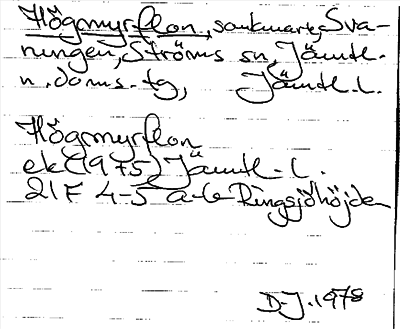 Högmyrflon, sankmark, Sva-
nungen, Ströms sn, Jämtl.
n. doms.tg, Jämtl. l.
Högmyrflon
ek (1975) Jämtl. l.
21F 4-5 a-b Ringsjöhöjden
D-J. 1978